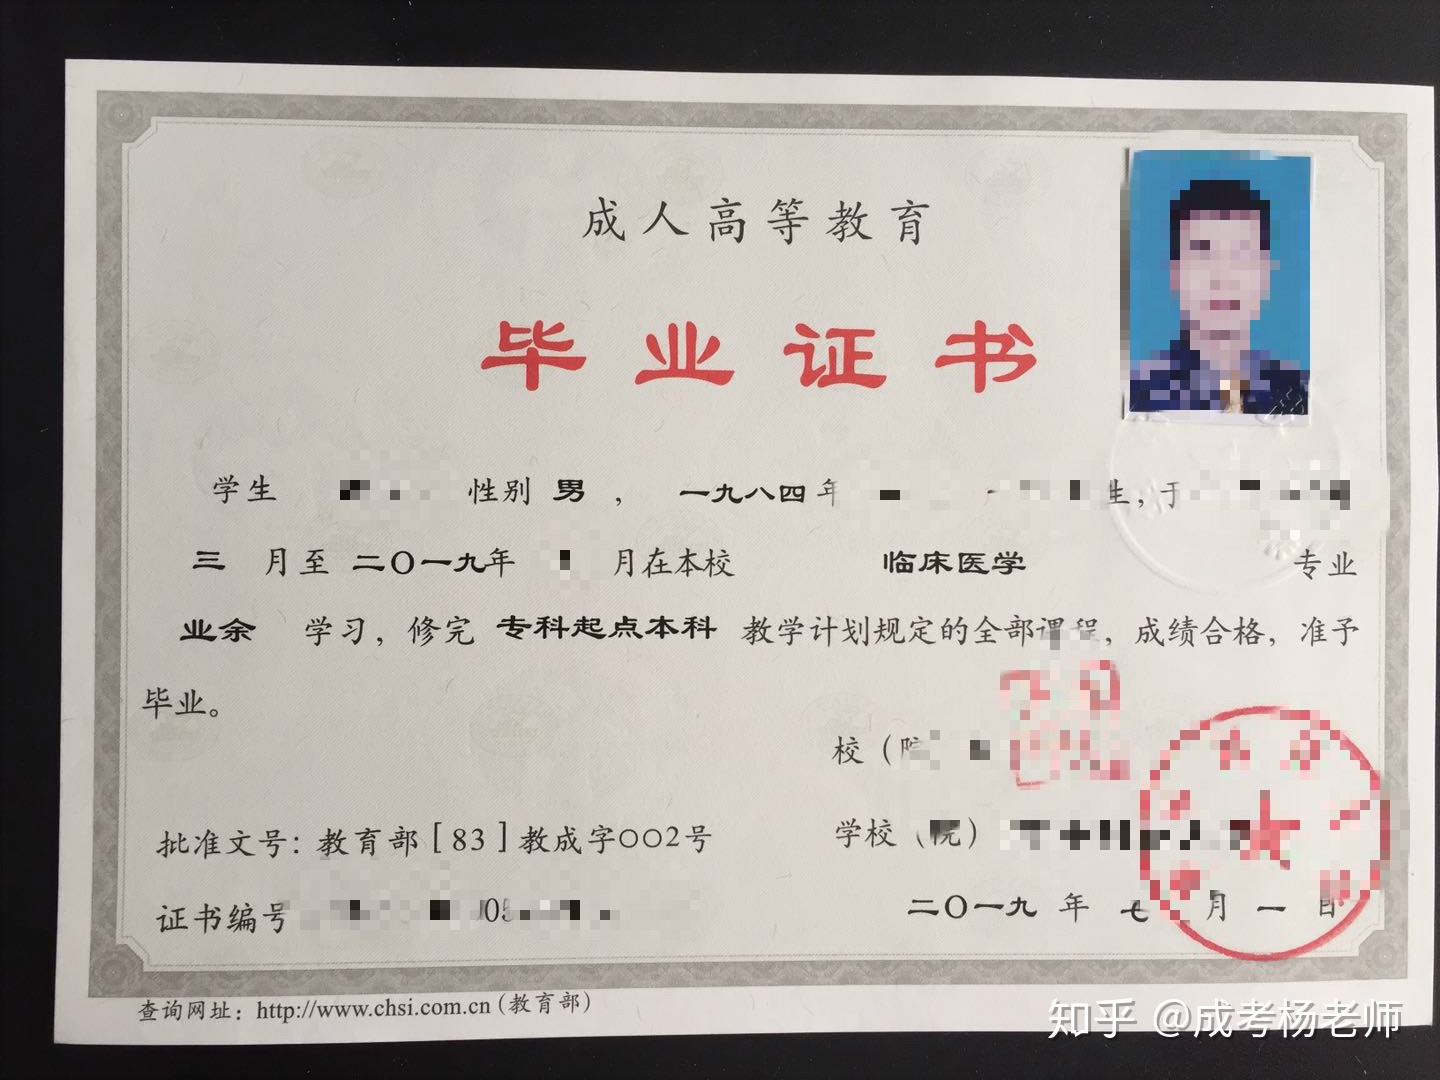 成人高等教育
毕业证书
学生 性别 男 ， 一九八四年 生，于
三 月至 二〇一九年 月在本校 临床医学 专业
业余 学习，修完 专科起点本科 教学计划规定的全部课程，成绩合格，准予
毕业。
校（院
批准文号：教育部［83］教成字〇〇2号
学校（院）
证书编号
二〇一九 年 七 月 一 日
查询网址：http://www.chsi.com.cn（教育部）
知乎 @成考杨老师